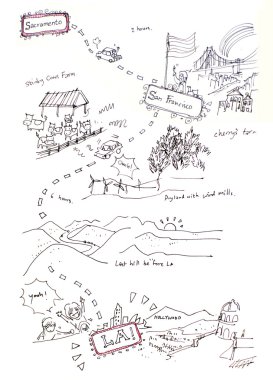 Sacramento
2 hours.
San Francisco
Stinky Cows Farm
cherry's farm
Yeah!
6 hours.
Dryland with wind mills.
Last hill before LA
Yeah!
HOLLYWOOD
LA!